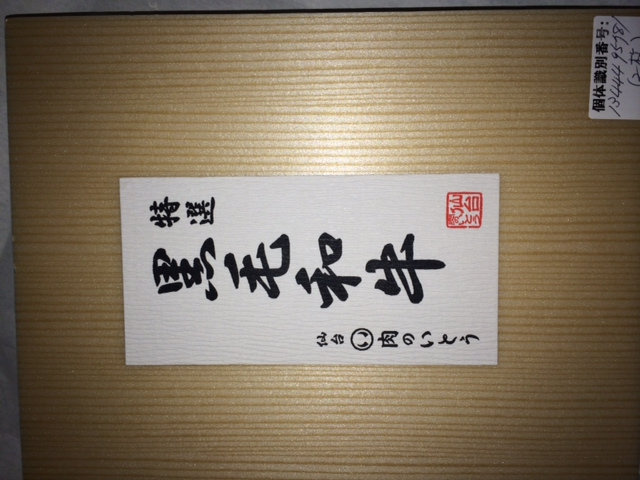 特選
黒毛和牛
仙台 い 肉のいとう
個体識別番号: